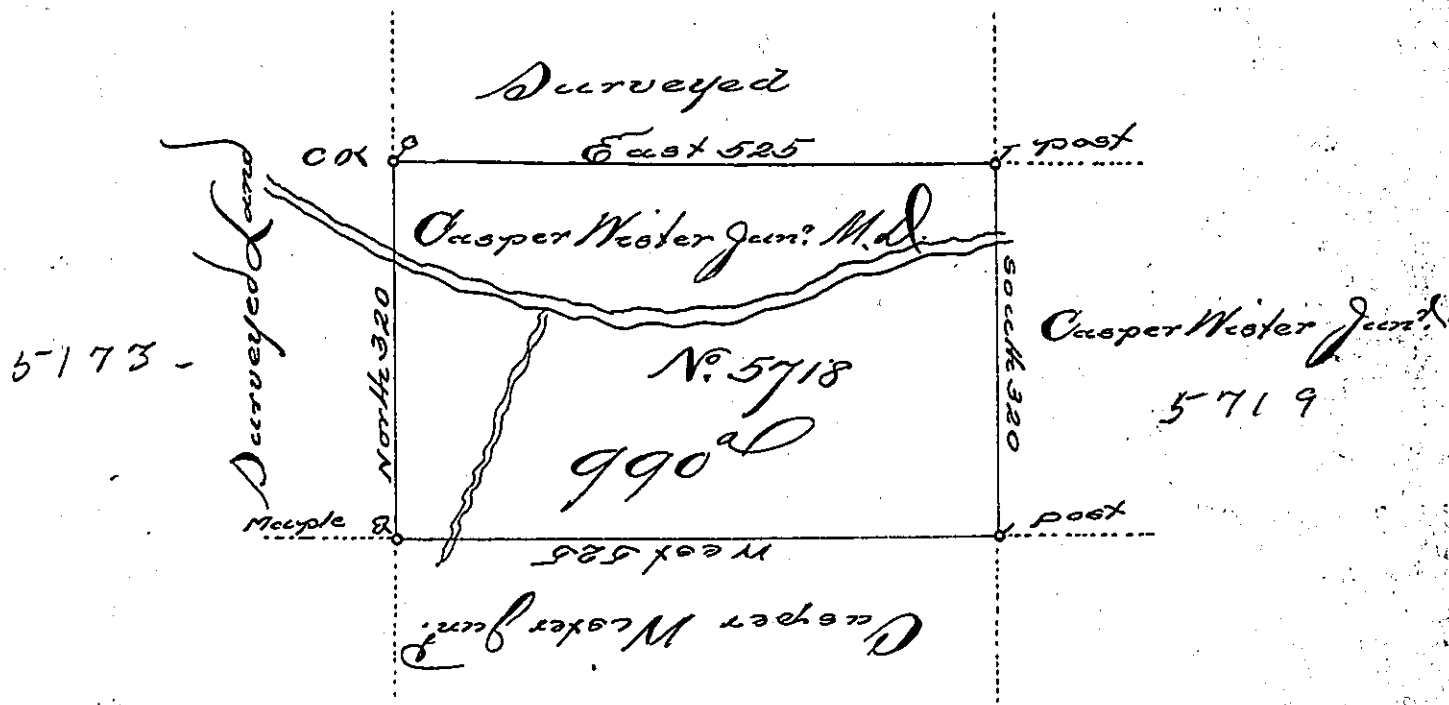 Surveyed
East 525
post
Surveyed Land
Casper Wister Junr. M.D.
North 320
South 320
5173 -
No. 5718
Casper Wister Junr.
5719
990 a
Maple
post
West 525
Casper Wister Junr.